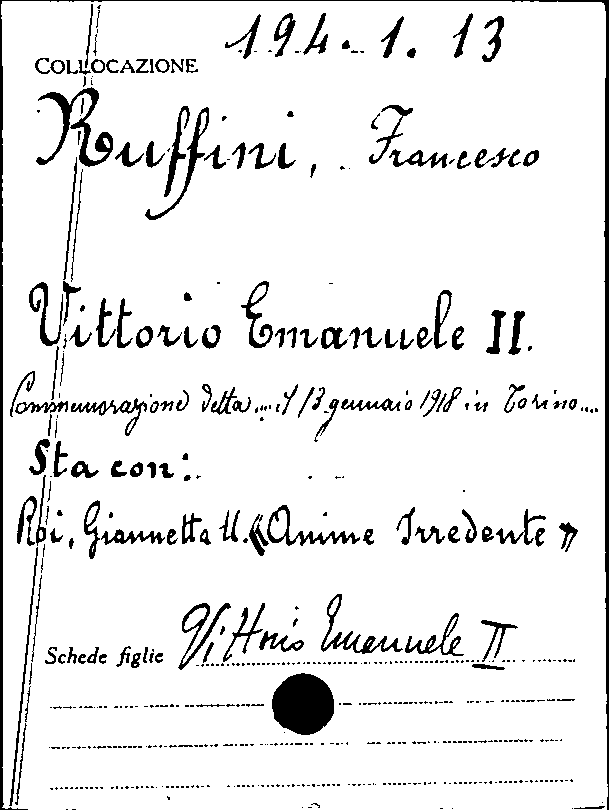 194. 1. 13
COLLOCAZIONE
Ruffini, Francesco
Vittorio Emanuele II.
Commemorazione detta ... il 13 gennaio 1918 in Torino ...
Sta con:
Roi, Giannetta U. « Anime Irredente »
Schede figlie Vittorio Emanuele II